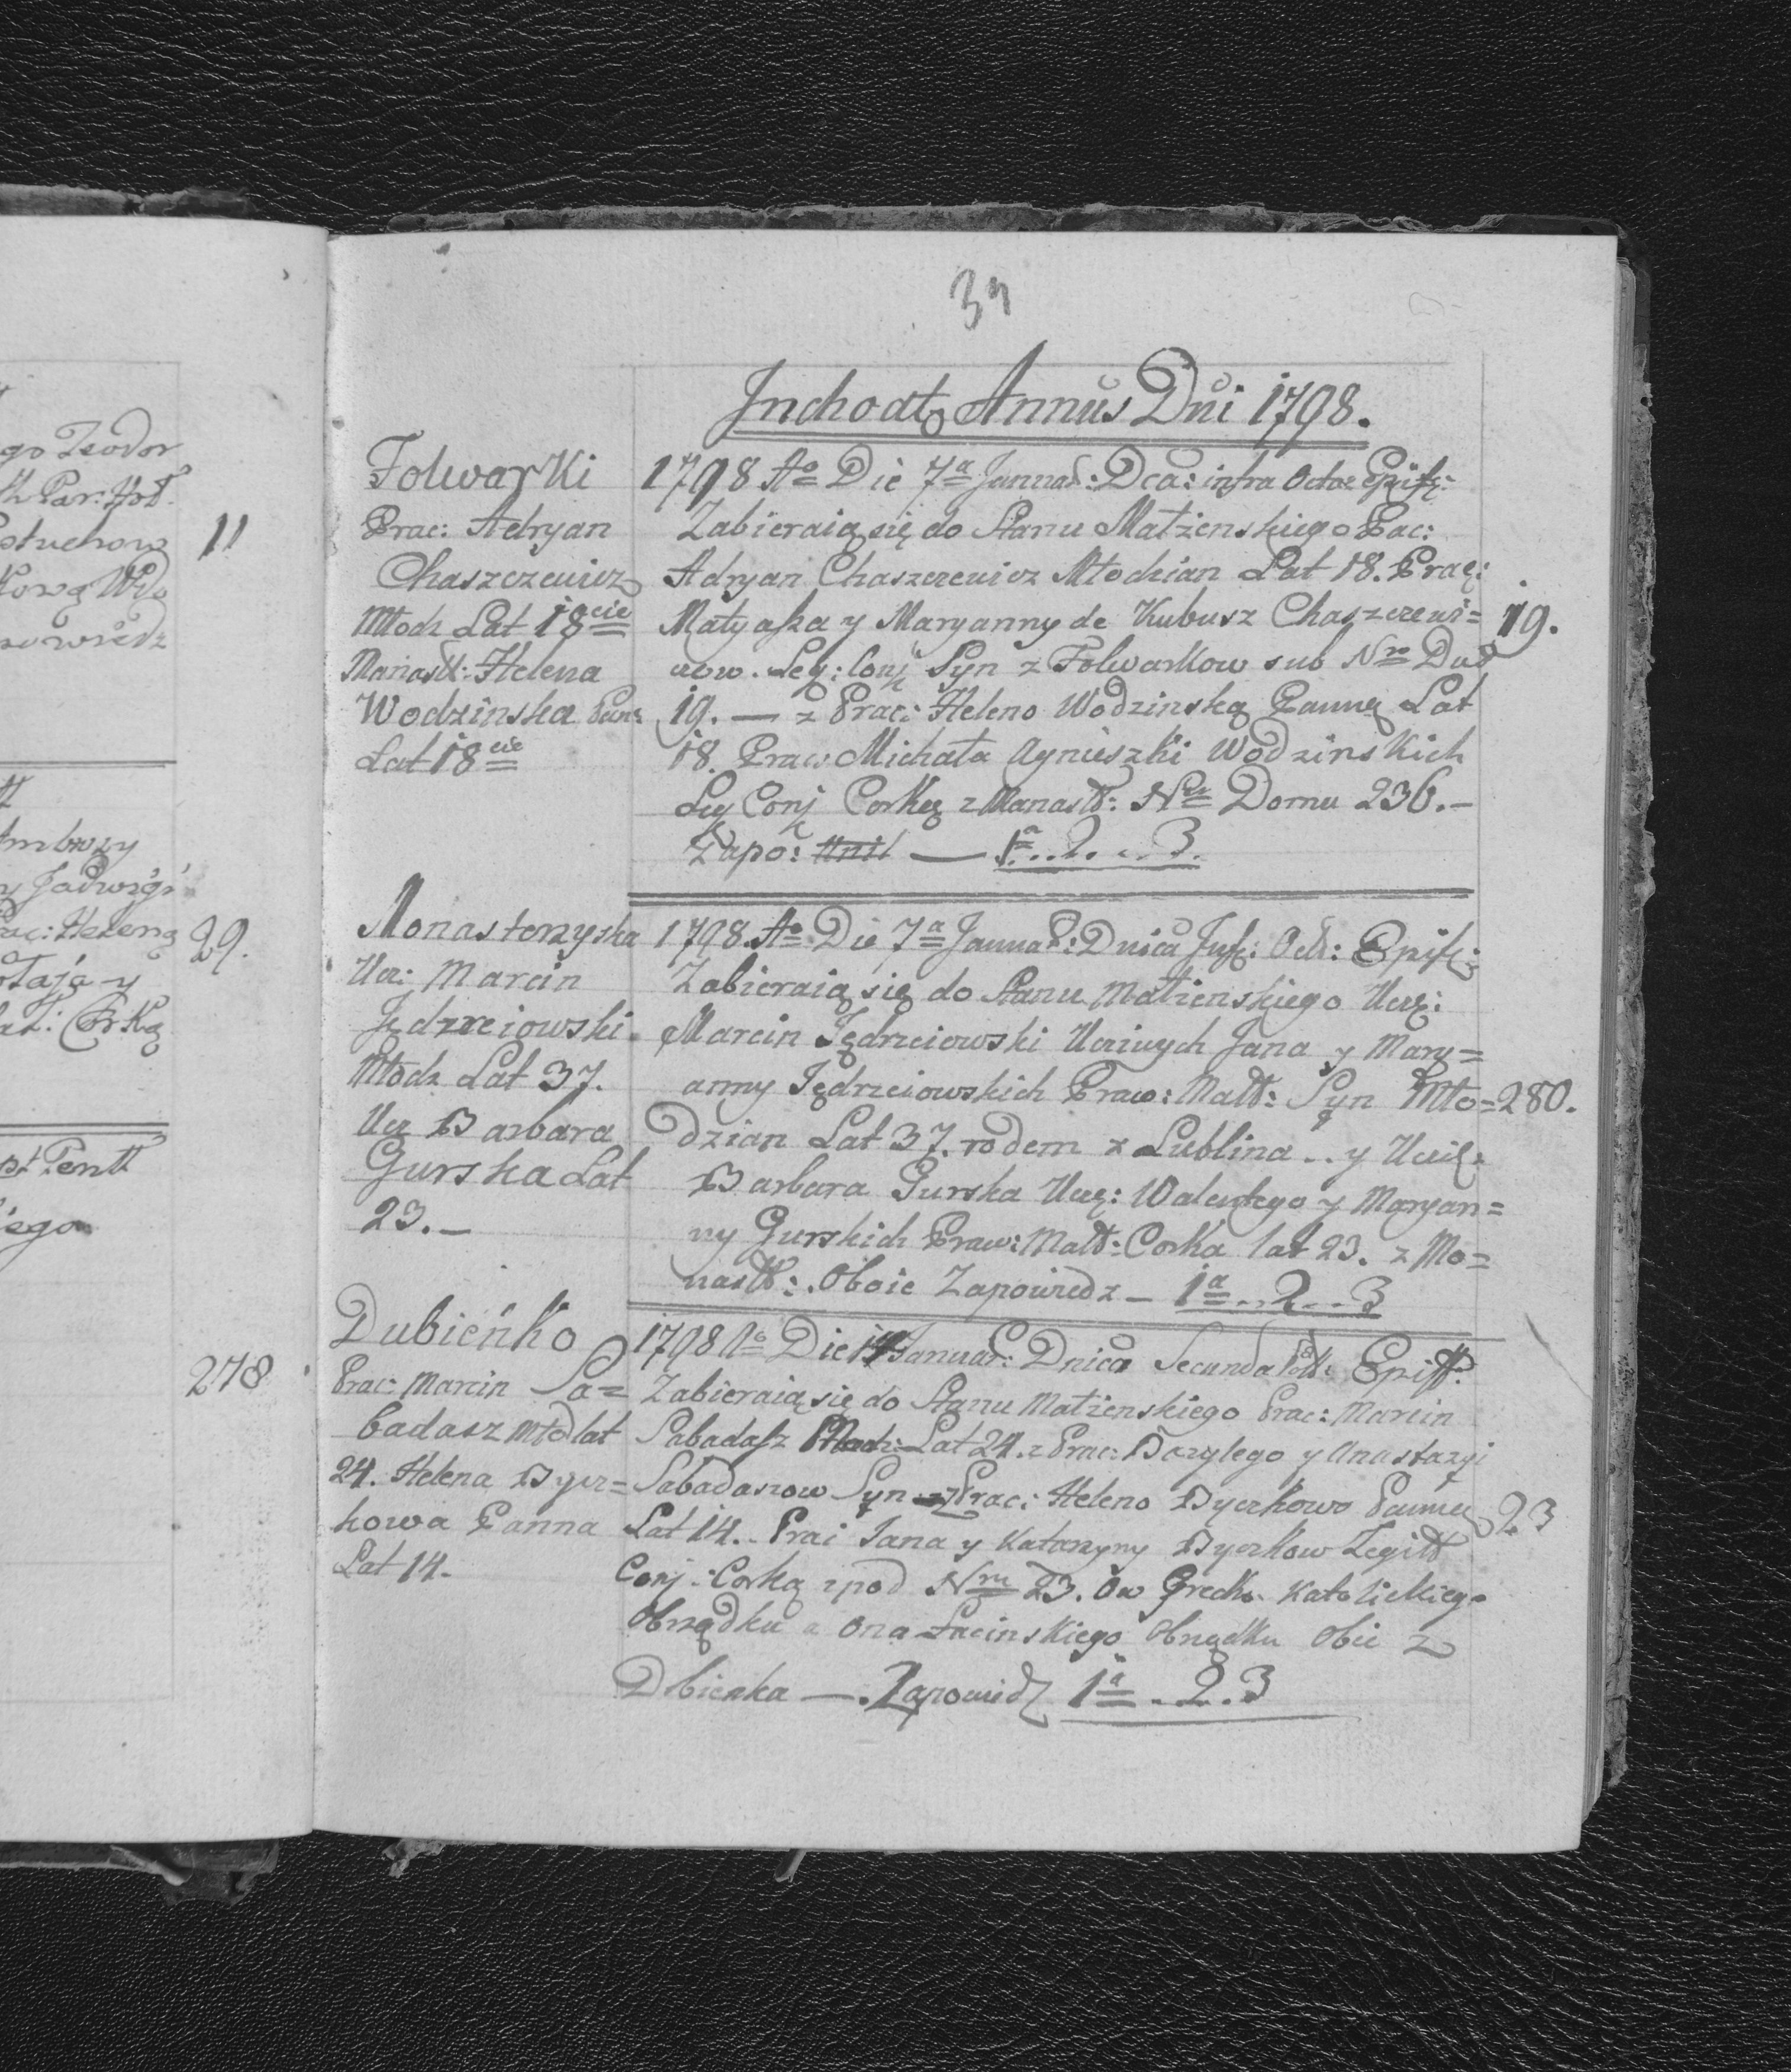 go Teodor
11
29.
y Jadwigi
278
39
Inchoat Annus Dni 1798.
Folwarki
Prac: Adryan
Chaszczewicz
Młodz Lat 18cie
Manastt: Helena
Wodzinska Pan:
Lat 18cie
1798 Ao Die 7a Januar: Dca: infra Octa: Epif:
Zabieraią się do Stanu Małżenskiego Pac:
Adryan Chaszczewicz Młodzian Lat 18. Prac:
Matyasza y Maryanny de Kubusz Chaszczewi= 19.
czow. Leg: Conj Syn z Folwarkow sub Nro Dud
19. — z Prac: Heleno Wodzinską Panną Lat
18. Prac: Michała Agnieszki Wodzinskich
Leg Conj Corkę z Manastt: Nro Domu 236.-
Zapo: — 1a..2...3.
Monasterzyska
Ucz: Marcin
Jędrzeiowski
Młodz Lat 37.
Ucz Barbara
Gurska Lat
23.-
1798. Ao Die 7a Januar: Dnica Inf: Oct: Epif:
Zabieraią się do Stanu Małzienskiego Ucz:
Marcin Jędrzeiowski Uczciwych Jana y Mary=
anny Jędrzeiowskich Praw: Małt: Syn Mło= 280.
dzian Lat 37. rodem z Lublina .. y Ucz:
Barbara Gurska Ucz: Walentego y Maryan=
ny Gurskich Praw: Małt: Corka lat 23. z Mo=
nastt: Oboie Zapowiedz — 1a..2...3
Dubieńko
Prac: Marcin Sa=
badasz Młod lat
24. Helena Bycz=
kowa Panna
Lat 14.
1798 Ao Die 14 Januar: Dnica Secunda Post Epiff:
Zabieraią się do Stanu Małzenskiego Prac: Marcin
Sabadasz Młodz: Lat 24. z Prac: Bazylego y Anastazyi
Sabadaszow Syn z Prac: Heleno Byczkowo Pannę 23
Lat 14.. Prac Jana y Katarzyny Byczkow Legitt
Conj: Corką zpod Nru 23. Ow Grecko Katolickiego
Obrządku a Ona Łacinskiego Obrządku Obie z
Dbienka —. Zapowidz 1a..2.3